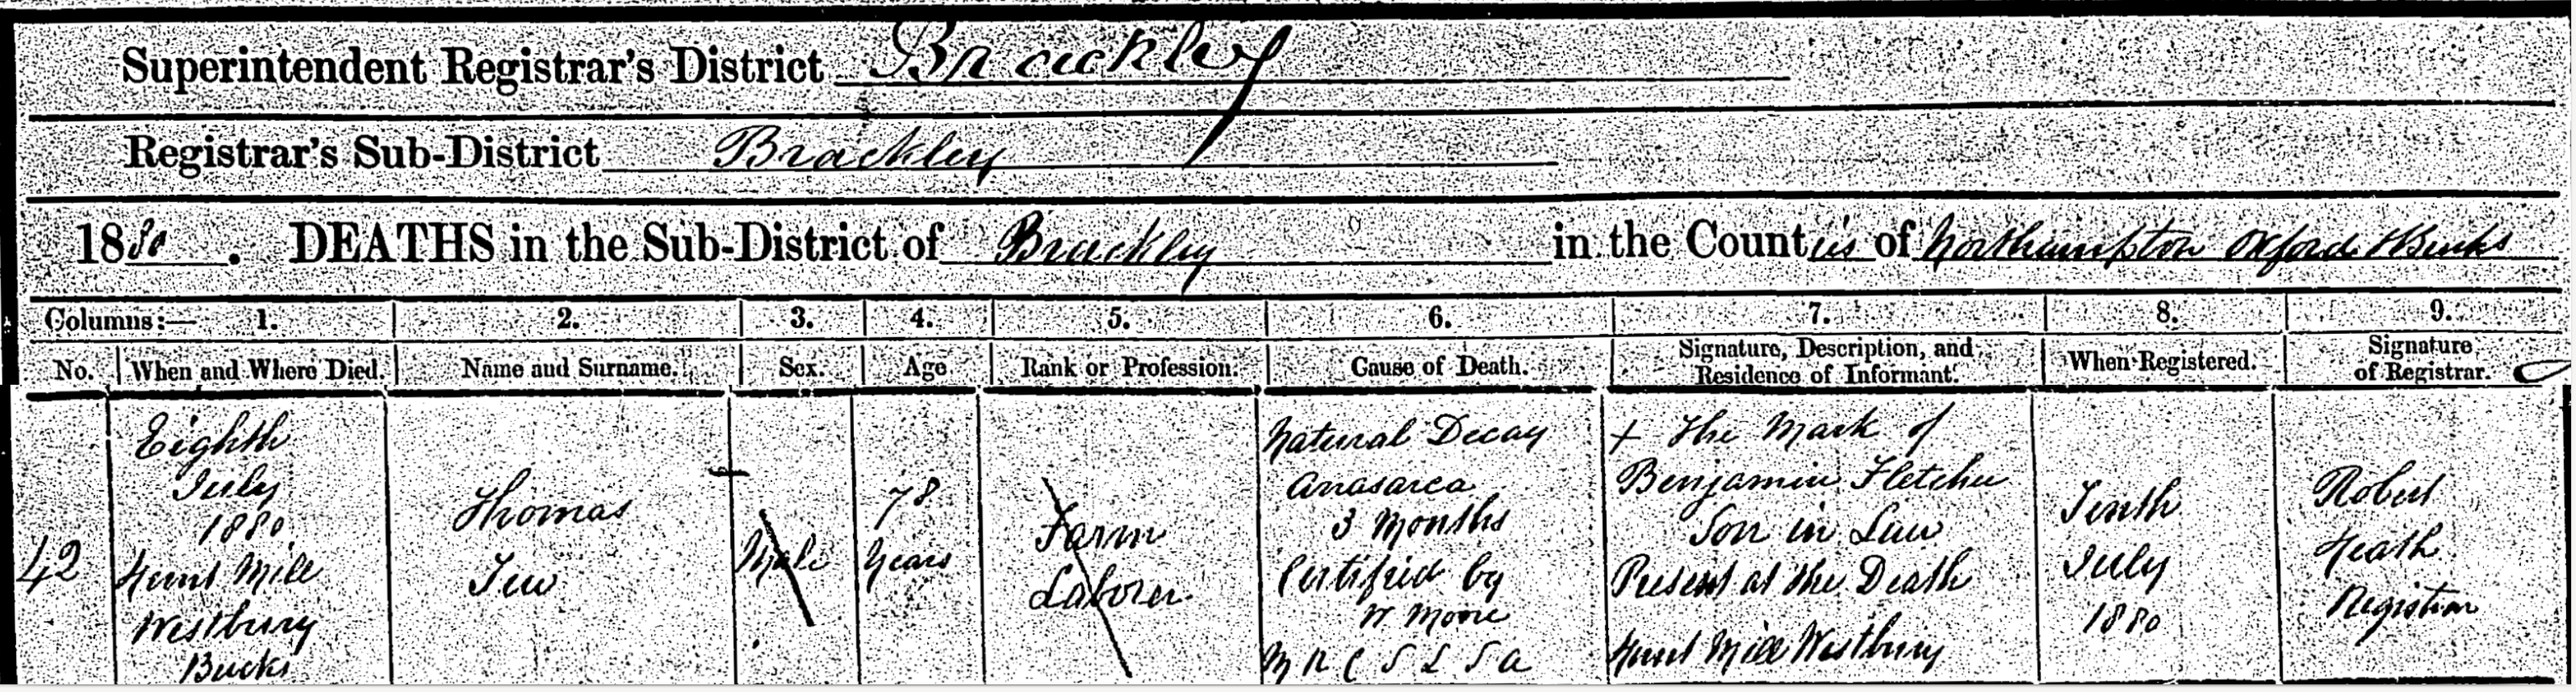 Superintendent Registrar's District Brackley
Registrar's Sub-District Brackley
1880. DEATHS in the Sub-District of Brackley in the Counties of Northampton Oxford & Bucks
Columns:— 1. 2. 3. 4. 5. 6. 7. 8. 9.
No. When and Where Died. Name and Surname. Sex. Age Rank or Profession. Cause of Death. Signature, Description, and Residence of Informant. When Registered. Signature of Registrar.
42
Eighth
July
1880
Hunt Mill
Westbury
Bucks
Thomas
Tew
Male
78
Years
Farm
Laborer
Natural Decay
Anasarca
3 Months
Certified by
W Moore
M R C S L S A
+ The Mark of
Benjamin Fletcher
Son in Law
Present at the Death
Hunt Mill Westbury
Tenth
July
1880
Robert
Heath
Registrar